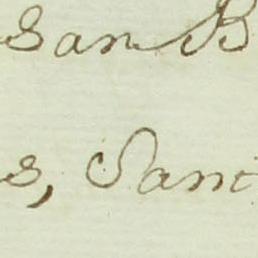 San B
s, Sant